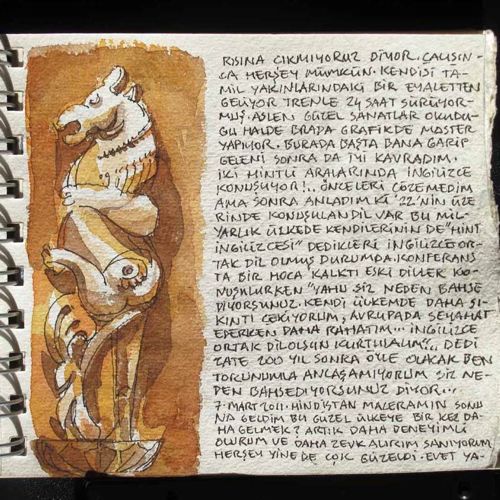 RISINA ÇIKMIYORUZ DİYOR. ÇALIŞIN-
CA HERŞEY MÜMKÜN. KENDİSİ TA-
MİL YAKINLARINDAKİ BİR EYALETTEN
GELİYOR TRENLE 24 SAAT SÜRÜYOR-
MUŞ, ASLEN GÜZEL SANATLAR OKUDU-
ĞU HALDE BRADA GRAFİKDE MASTER
YAPIYOR. BURADA BAŞTA BANA GARİP
GELENİ SONRA DA İYİ KAVRADIM.
İKİ HİNTLİ ARALARINDA İNGİLİZCE
KONUŞUYOR!.. ÖNCELERİ ÇÖZEMEDİM
AMA SONRA ANLADIM Kİ '22.'NİN ÜZE
RİNDE KONUŞULAN DİL VAR BU MİL-
YARLIK ÜLKEDE KENDİLERİNİN DE "HİNT
İNGİLİZCESİ" DEDİKLERİ İNGİLİZCE OR-
TAK DİL OLMUŞ DURUMDA. KONFERANS
TA BİR HOCA KALKTI ESKİ DİLLER KO-
NUŞULURKEN "YAHU SİZ NEDEN BAHSE
DİYORSUNUZ. KENDİ ÜLKEMDE DAHA SI-
KINTI ÇEKİYORUM, AVRUPADA SEYAHAT
EDERKEN DAHA RAHATIM... İNGİLİZCE
ORTAK DİL OLSUN KURTULALIM!.. DEDİ
ZATE 200 YIL SONRA ÖYLE OLACAK BEN
TORUNUMLA ANLAŞAMIYORUM SİZ NE-
DEN BAHSEDİYORSUNUZ DİYOR...
7. MART 2011. HİNDİSTAN MACERAMIN SONU
NA GELDİM BU GÜZEL ÜLKEYE BİR KEZ DA-
HA GELMEK? ARTIK DAHA DENEYİMLİ
OLURUM VE DAHA ZEVK ALIRIM SANIYORUM
HERŞEY YİNE DE ÇOK GÜZELDİ. EVET YA-